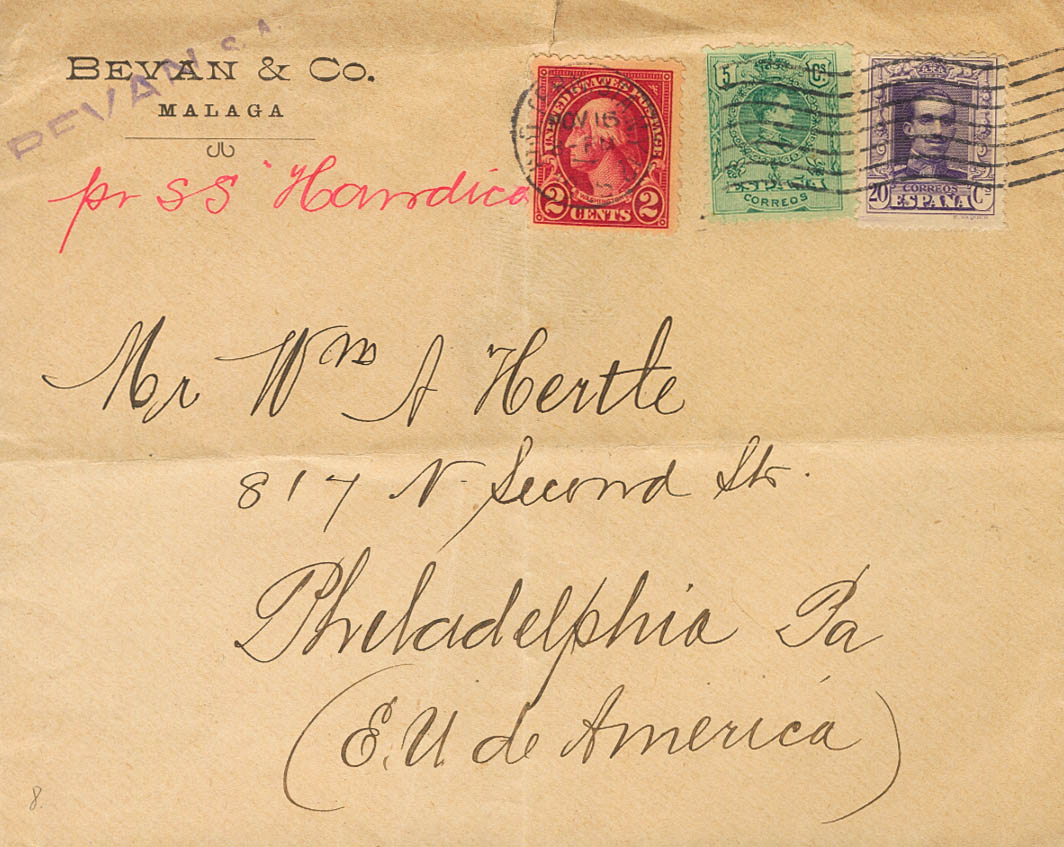 BEVAN & CO.
MALAGA
BEVAN
pr SS "Hardica
UNITED STATES POSTAGE
NOV 16
2 CENTS 2
5 Cs
ESPAÑA
CORREOS
CORREOS
20 ESPAÑA Cs
Mr Wm A Hertle
817 N. Second Str.
Philadelphia Pa
(E.U. de America)
8.